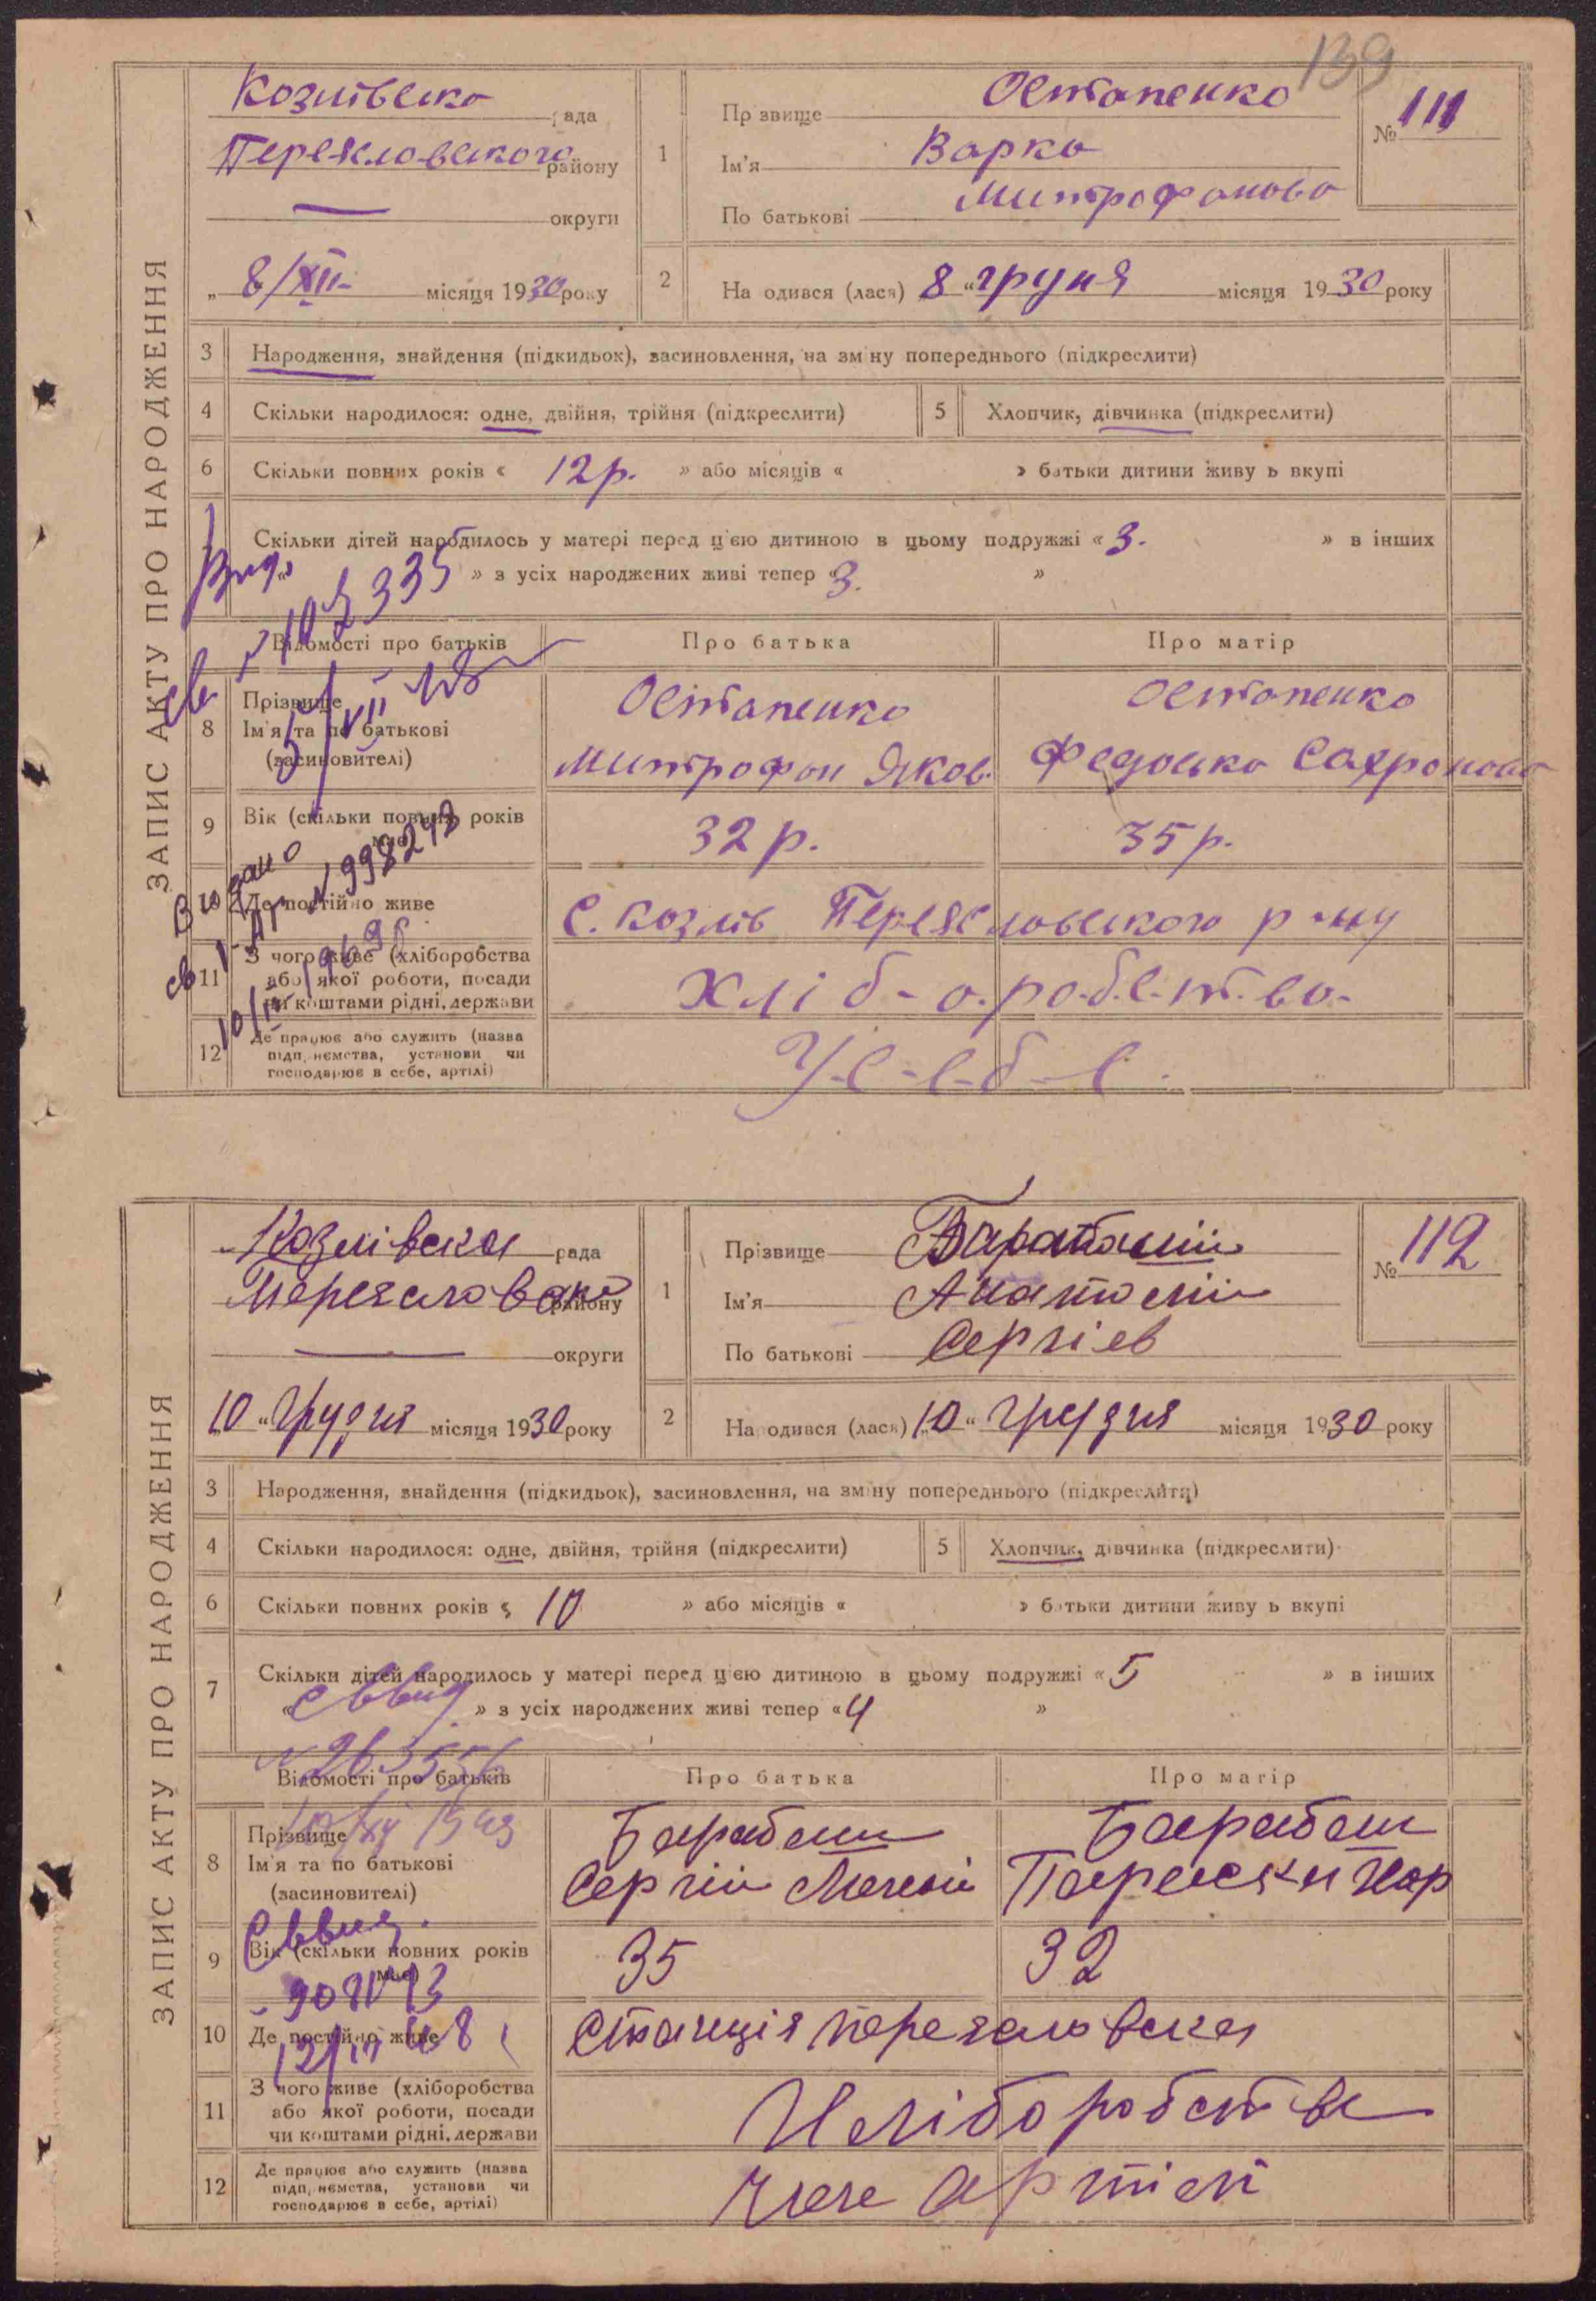 139
ЗАПИС АКТУ ПРО НАРОДЖЕННЯ
Козлівська рада
Переяловського району
округи
8/XII місяця 1930 року
1
Прізвище Остапенко
Ім'я Варка
По батькові Митрофанова
№ 111
2
На одився (лася) 8 "груня місяця 1930 року
3 Народження, знайдення (підкидьок), засиновлення, на зміну попереднього (підкреслити)
4 Скільки народилося: одне, двійня, трійня (підкреслити)
5 Хлопчик, дівчинка (підкреслити)
6 Скільки повних років « 12р. » або місяців « » батьки дитини живу ь вкупі
Скільки дітей народилось у матері перед цією дитиною в цьому подружжі « 3. » в інших
» з усіх народжених живі тепер « 3. »
Відомості про батьків Про батька Про матір
8 Прізвище
Ім'я та по батькові
(засиновителі)
Остапенко
Митрофан Яков.
Остапенко
Федоська Сахронова
9 Вік (скільки повних років має)
32 р. 35 р.
10 Де постійно живе
С. Козлів Переясловського р-ну
11 З чого живе (хліборобства
або якої роботи, посади
чи коштами рідні, держави
Хліб-о.ро.б.с.т.во.
12 Де працює або служить (назва
підп, немства, установи чи
господарює в себе, артілі)
У-с-е-б-е.
Вид.
335
Видано
N 998242
ЗАПИС АКТУ ПРО НАРОДЖЕННЯ
Козлівська рада
району
округи
"10 "Грудня місяця 1930 року
1
Прізвище Барабаш
Ім'я Анатолій
По батькові Сергієв
№ 112
2
На одився (лася) "10 "грудня місяця 1930 року
3 Народження, знайдення (підкидьок), засиновлення, на зміну попереднього (підкреслити)
4 Скільки народилося: одне, двійня, трійня (підкреслити)
5 Хлопчик, дівчинка (підкреслити)
6 Скільки повних років « 10 » або місяців « » батьки дитини живу ь вкупі
7 Скільки дітей народилось у матері перед цією дитиною в цьому подружжі « 5 » в інших
« » з усіх народжених живі тепер « 4 »
Відомості про батьків Про батька Про матір
8 Прізвище
Ім'я та по батькові
(засиновителі)
Барабаш
Сергій
Барабаш
9 Вік (скільки повних років має)
35 32
10 Де постійно живе
Станція Переяловска
11 З чого живе (хліборобства
або якої роботи, посади
чи коштами рідні, держави
Хліборобства
12 Де працює або служить (назва
підп, немства, установи чи
господарює в себе, артілі)
артілі